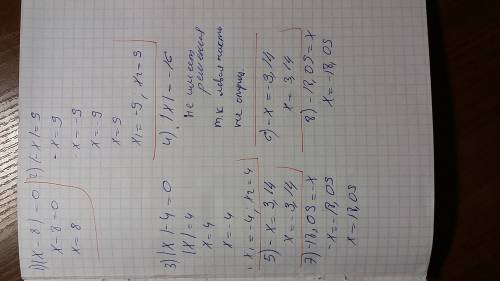 1) |x - 8| = 0
x - 8 = 0
x = 8
2) |-x| = 9
-x = 9
-x = -9
x = 9
x = 9
x₁ = -9, x₂ = 9
3) |x| - 4 = 0
|x| = 4
x = 4
x = -4
x₁ = -4, x₂ = 4
4) |x| = -16
Не имеет
решения
т.к левая часть
не отриц.
5) -x = 3,14
x = -3,14
6) -x = -3,14
x = 3,14
7) -18,09 = -x
-x = -18,09
x = 18,09
8) -18,09 = x
x = -18,09